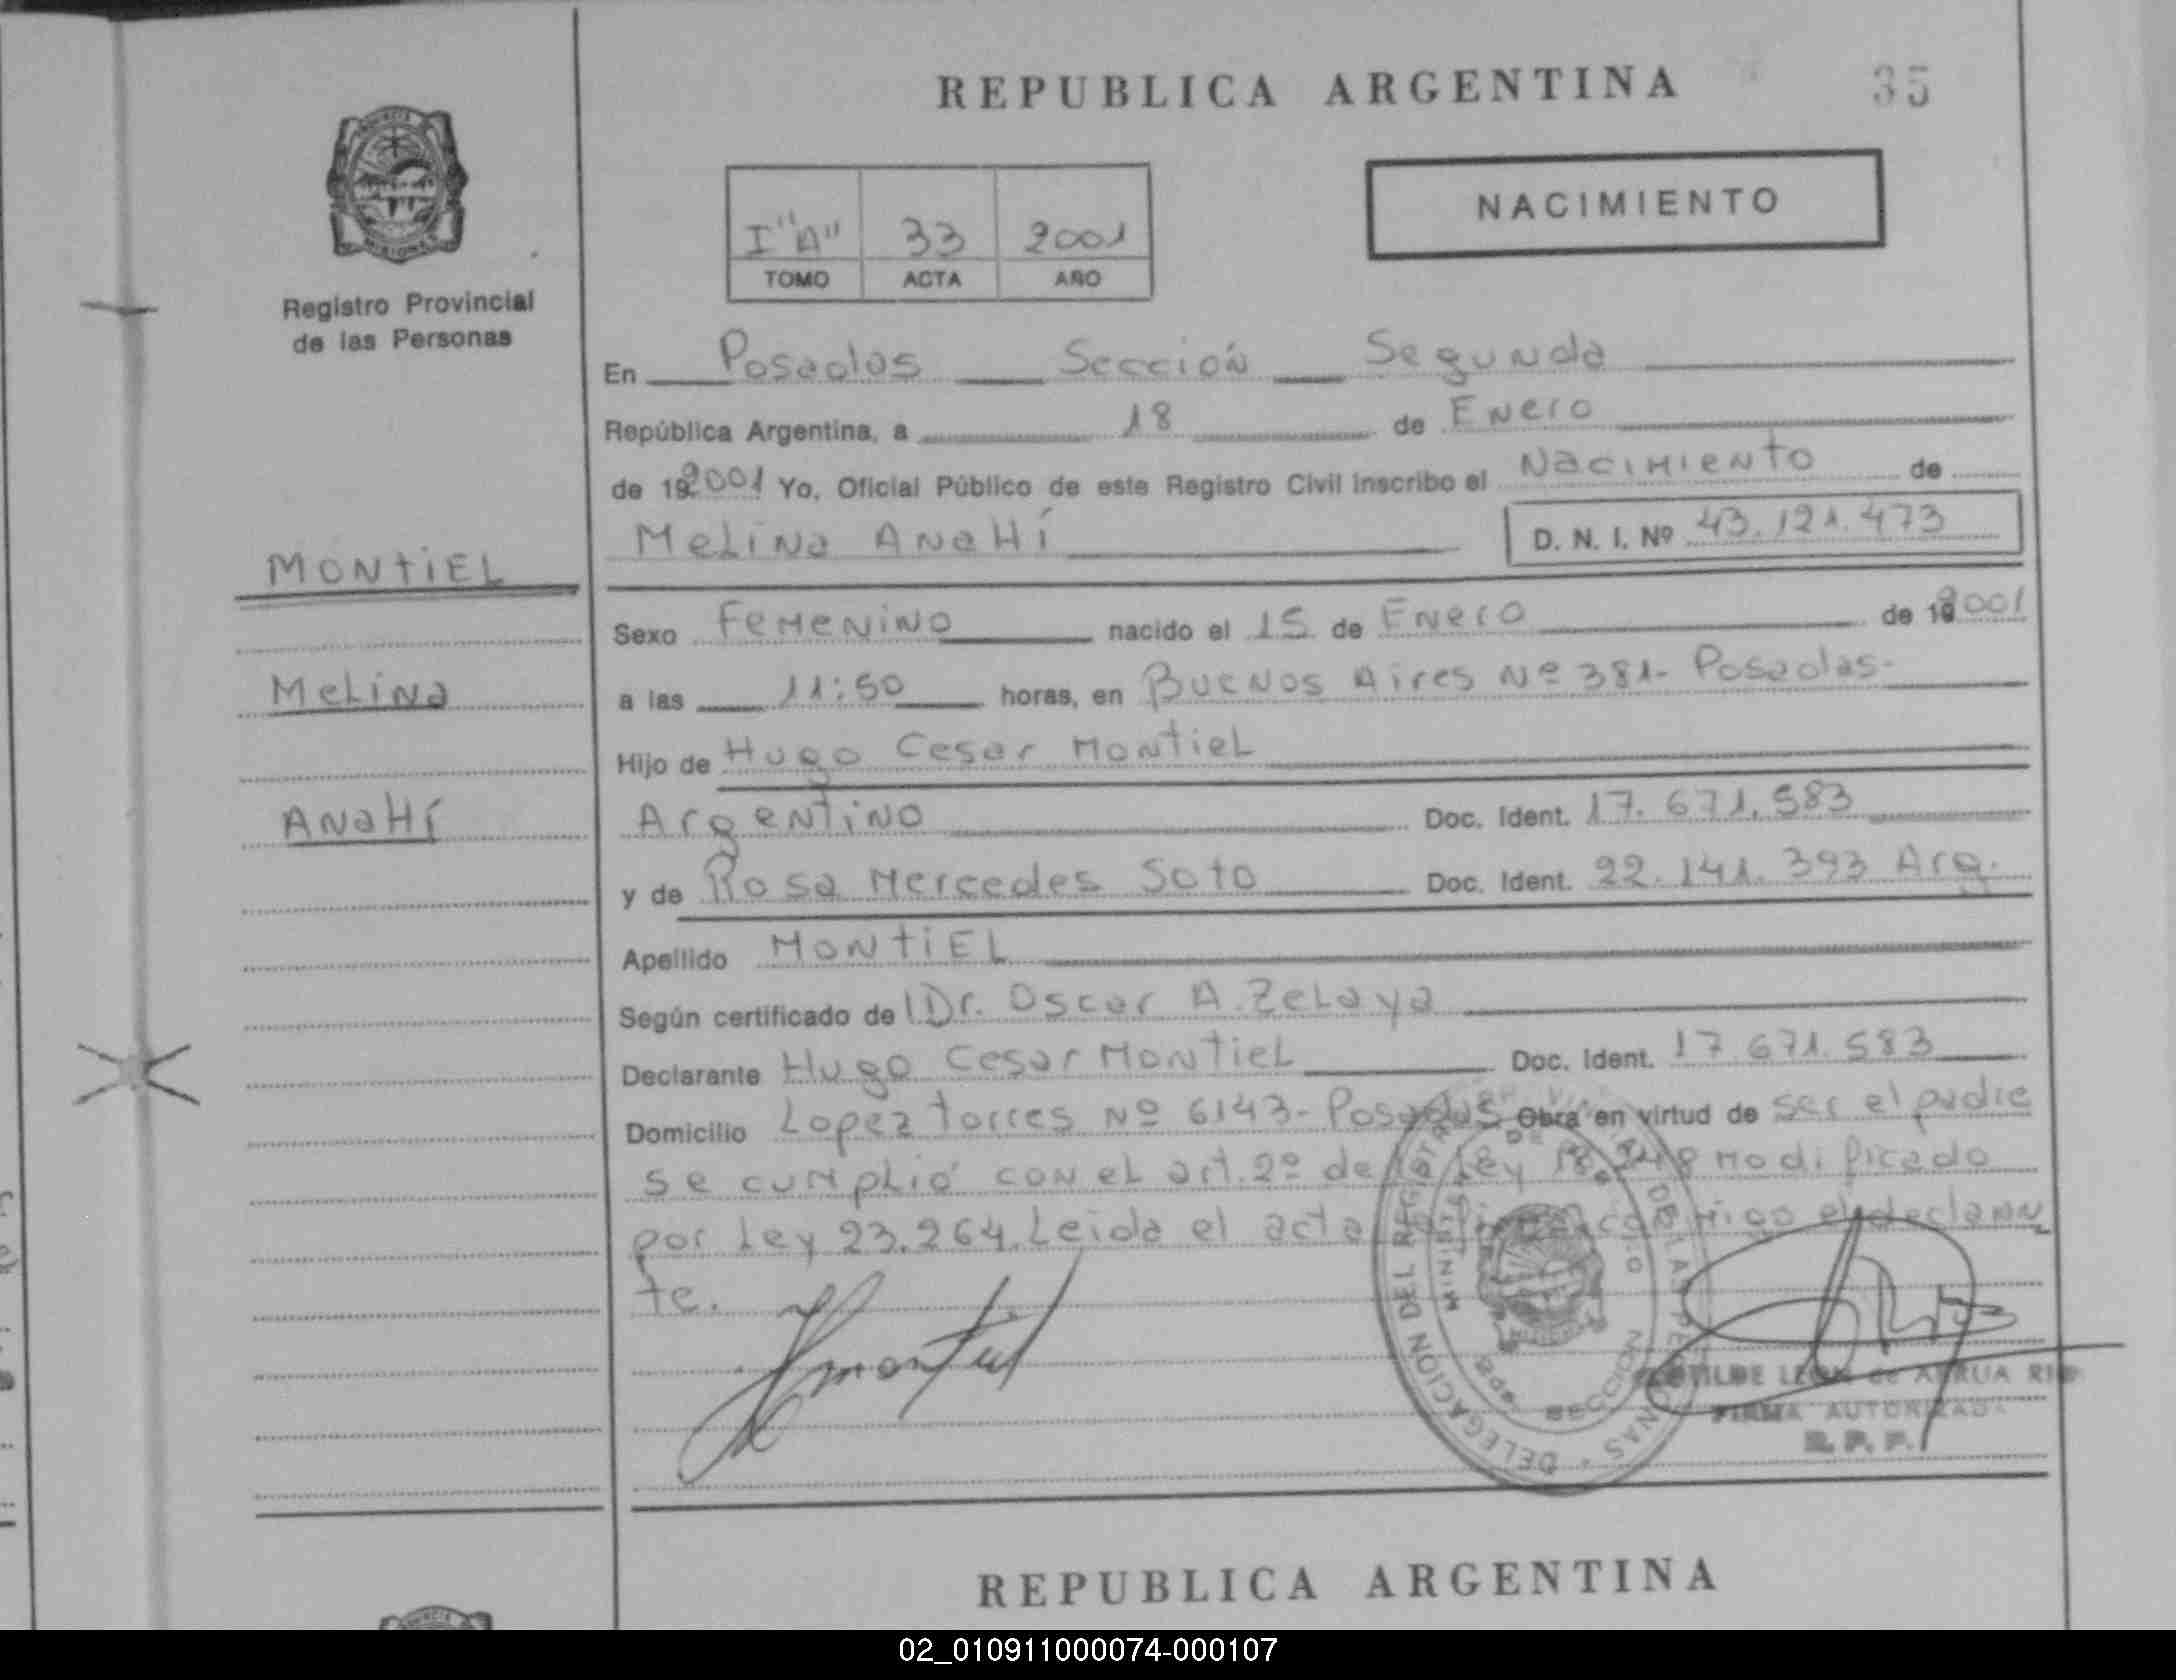 REPUBLICA ARGENTINA 35
Registro Provincial
de las Personas
I "A" 33 2001
TOMO ACTA AÑO
NACIMIENTO
En Posadas Sección Segunda
República Argentina, a 18 de Enero
de 192001 Yo, Oficial Público de este Registro Civil inscribo el Nacimiento de
Melina Anahí D. N. I. Nº 43.121.473
MONTIEL
Melina
Anahí
Sexo Femenino nacido el 15 de Enero de 192001
a las 11:50 horas, en Buenos Aires Nº 381- Posadas-
Hijo de Hugo Cesar Montiel
Argentino Doc. Ident. 17.671.583
y de Rosa Mercedes Soto Doc. Ident. 22.141.393 Arg.
Apellido MONTIEL
Según certificado de Dr. Oscar A. Zelaya
Declarante Hugo Cesar Montiel Doc. Ident. 17.671.583
Domicilio Lopez Torres Nº 6143- Posadas Obra en virtud de ser el padre
se cumplió con el art. 2º de la Ley 18.248 modificado
por Ley 23.264. Leida el acta conmigo el declaran
te.
DELEGACION DEL REGISTRO DE LAS PERSONAS
SECCION
LEON de
FIRMA AUTORIZADA
R. P. P.
REPUBLICA ARGENTINA
02_010911000074-000107